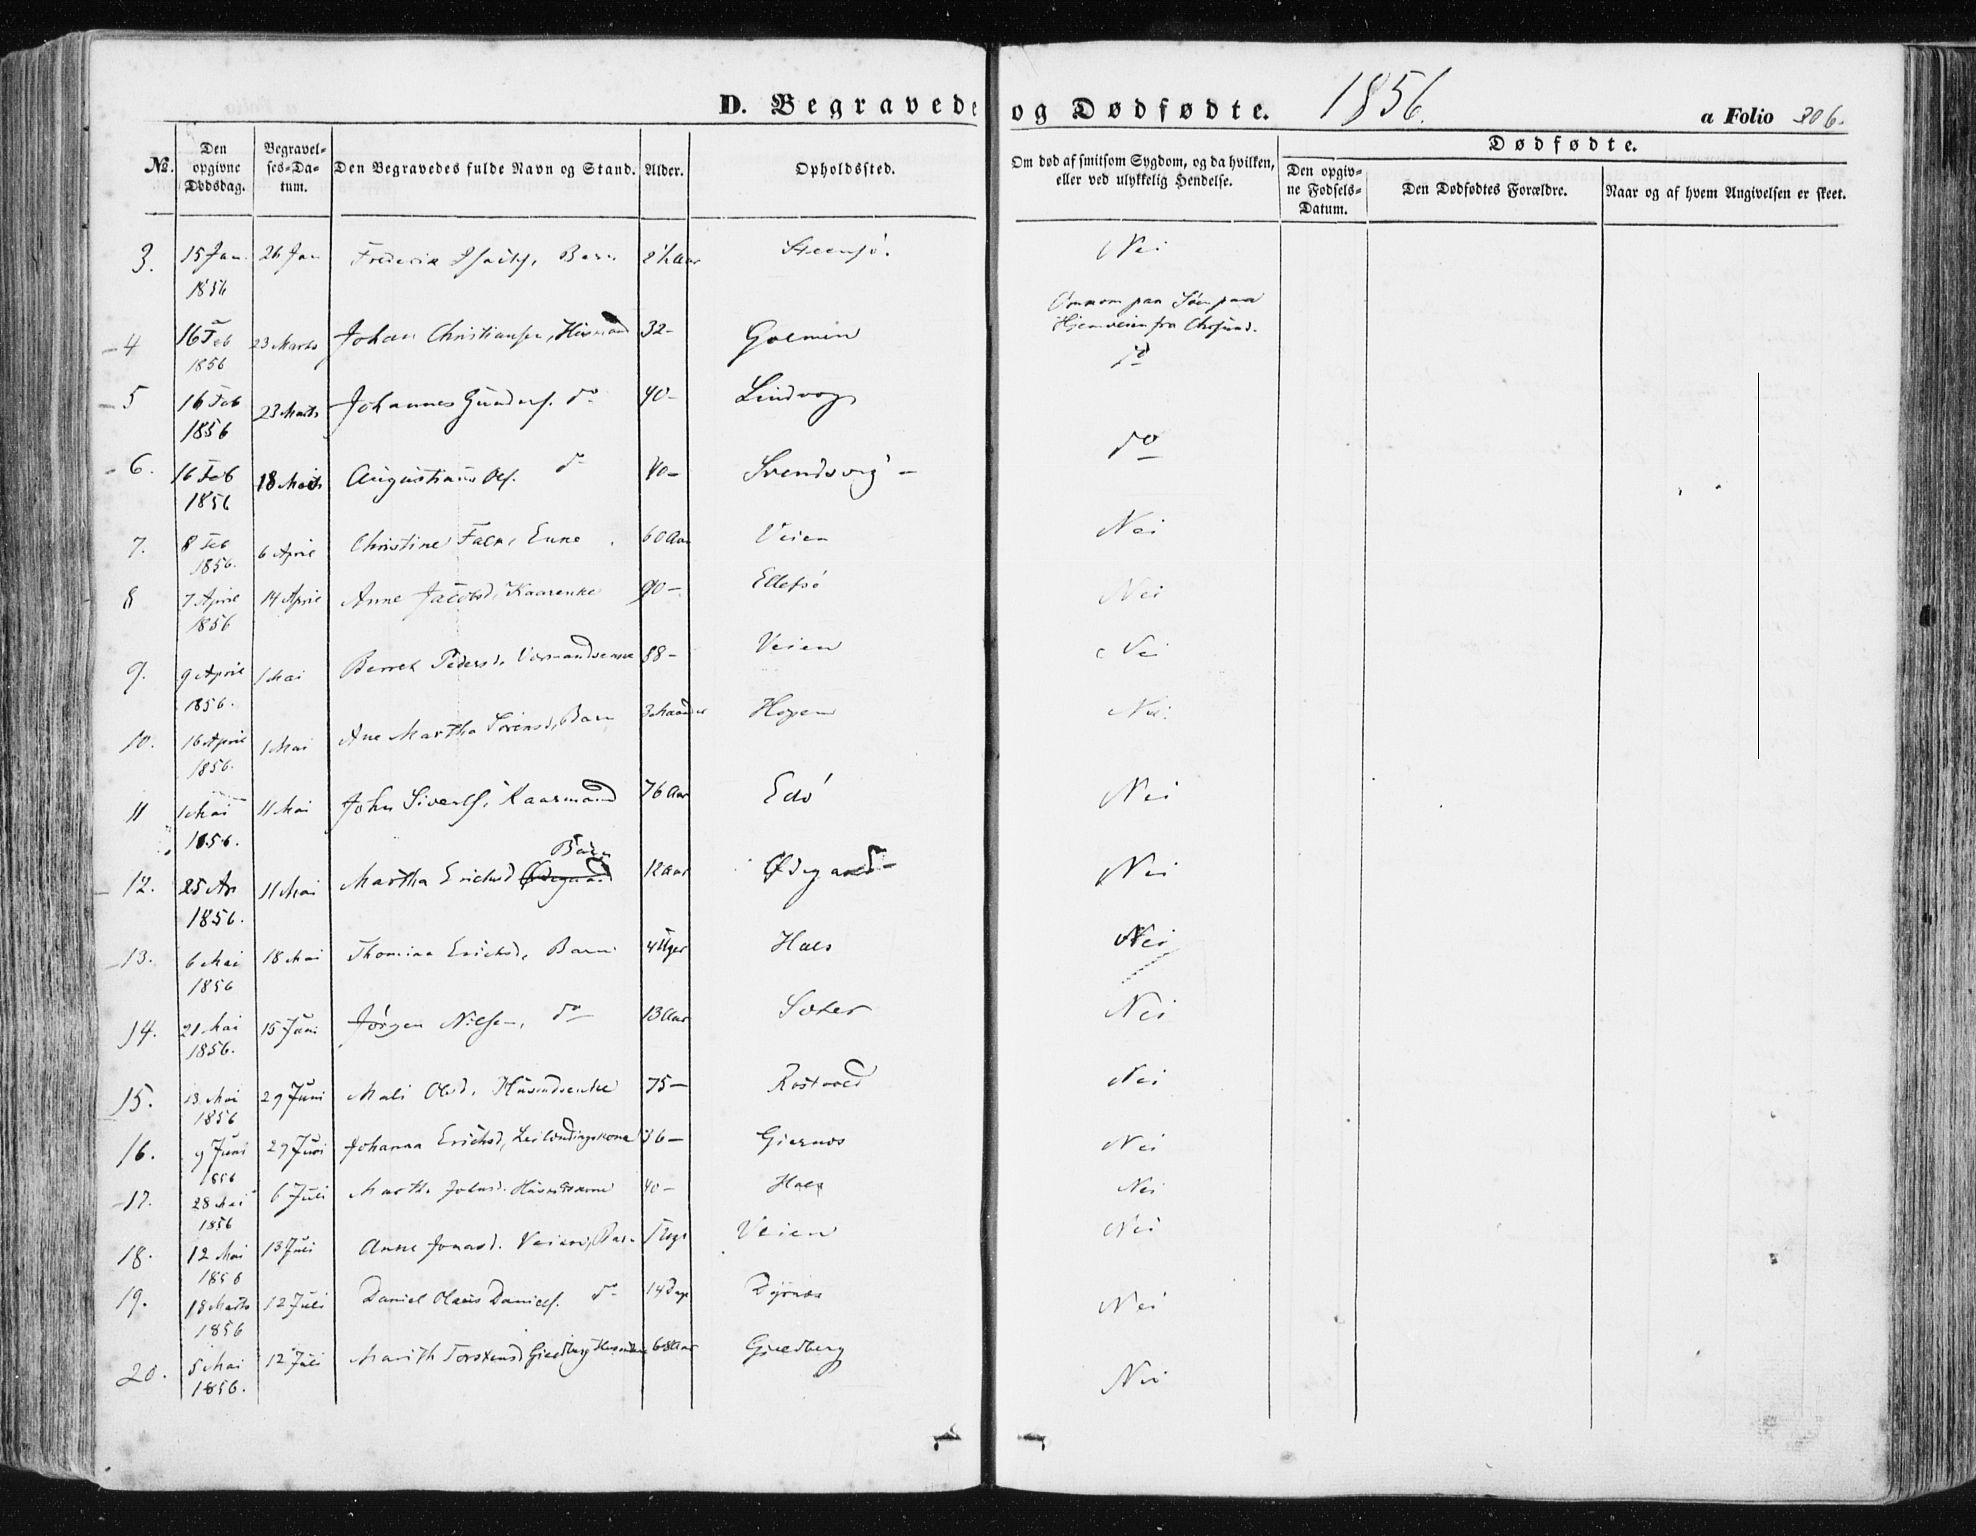 D. Begravede og Dødfødte. 1856. a Folio 306.
No. Den opgivne Dødsdag. Begravelses-Datum. Den Begravedes fulde Navn og Stand. Alder. Opholdssted. Om død af smitsom Sygdom, og da hvilken, eller ved ulykkelig Hendelse. Dødfødte.
Den opgivne Fødsels-Datum. Den Dødfødtes Forældre. Naar og af hvem Angivelsen er skeet.
3. 15 Jan 1856 26 Jan Barn Nei
4 16 Feb 1856 23 Marts Johan Christiansen, Husmand 32- Golmen Omkom paa Søen paa Hjemveien fra Chrsund.
5 16 Feb 1856 23 Marts Johannes Gunders. do 40- Lindvog do
6. 16 Feb 1856 18 Marts Augustinus Ols. do 40- Svendsvig- do
7. 8 Feb 1856. 6 April Christine Falk, Enke 60 Aar Veien Nei
8 7 April 1856 14 April Anne Jacobsd, Kaarenke 90- Ellefsø Nei
9. 9 April 1856. 1 Mai Berret Pedersd, 58- Veien Nei
10. 16 April 1856. 1 Mai Ane Martha Sörensd, Barn 3 Maaneder Hopen Nei.
11 1 Mai 1856. 11 Mai John Siverts, Kaarmand 76 Aar Edö Nei
12. 25 Ap 1856. 11 Mai Martha Erichsd Ødegaard Barn 12 Aar Ødegaard- Nei
13. 6 Mai 1856 18 Mai Thomina Erichsd, Barn 4 Uger Hals Nei
14. 21 Mai 1856. 15 Juni Jörgen Nilsen, do 13 Aar Soker Nei
15. 13 Mai 1856 29 Juni Mali Olsd, Husmdsenke 75- Rostvold Nei
16. 9 Juni 1856 29 Juni Johanna Erichsd, Leilændingskone 36- Giernæs Nei
17. 28 Mai 1856 6 Juli Marth. Johnsd. Husmdskone 40- Hals Nei
18. 12 Mai 1856 13 Juli Anne Jonasd. Veien, Barn Veien Nei
19. 18 Marts 1856 12 Juli Daniel Olaus Daniels. do 14 Dage Dyrnæs Nei
20. 5 Mai 1856. 12 Juli Marith Torstensd Gjedberg 68 Aar Gjedberg Nei